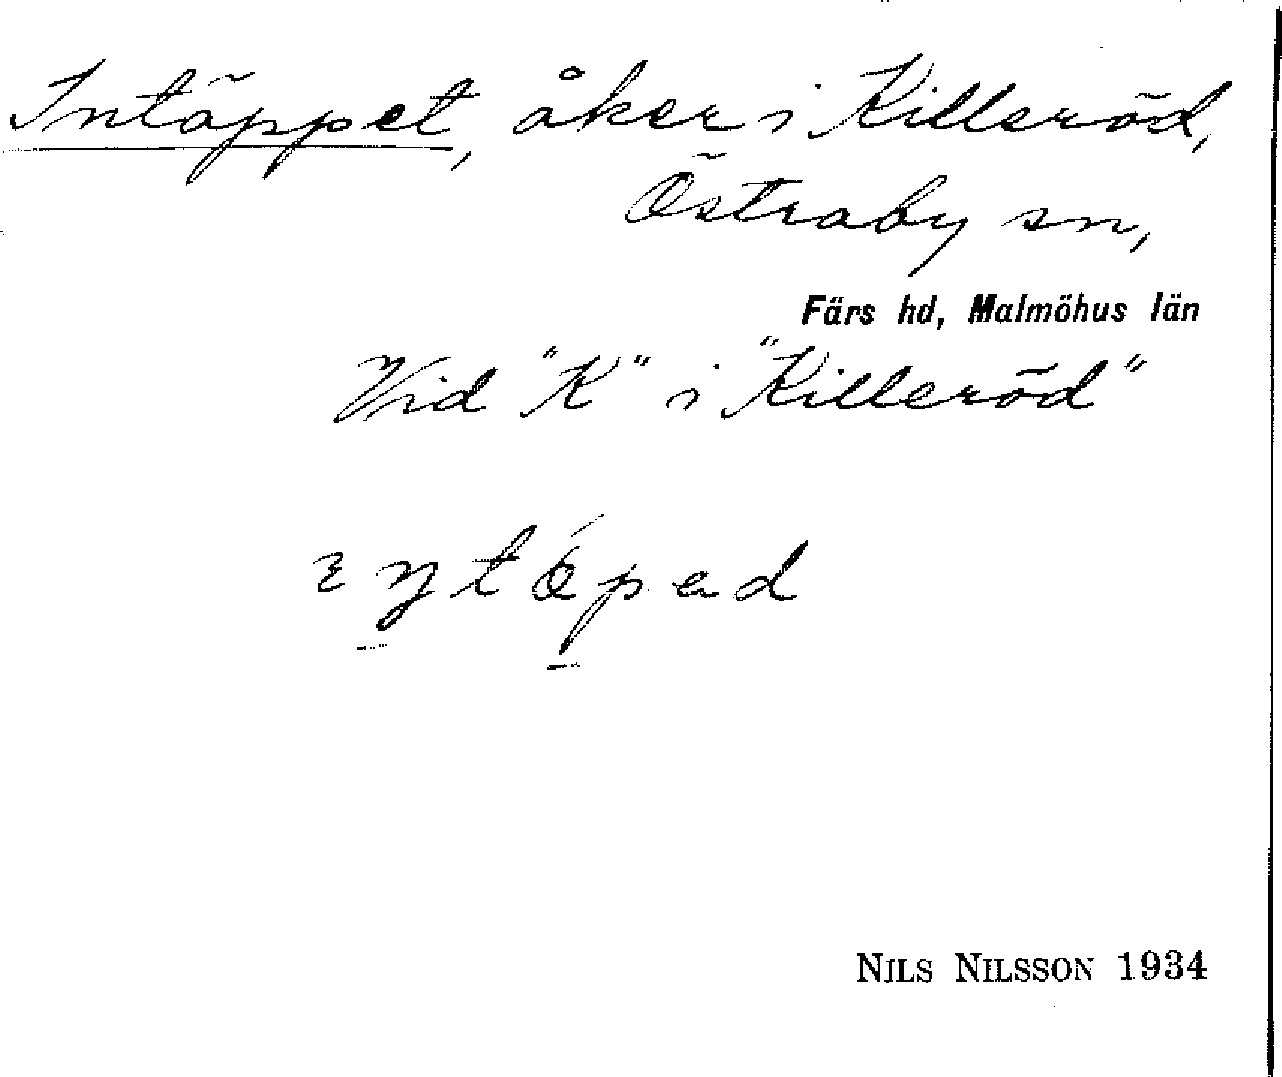 Intäppet, åker i Killeröd,
Östraby sn,
Färs hd, Malmöhus län
Vid "K" i "Killeröd"
NILS NILSSON 1934